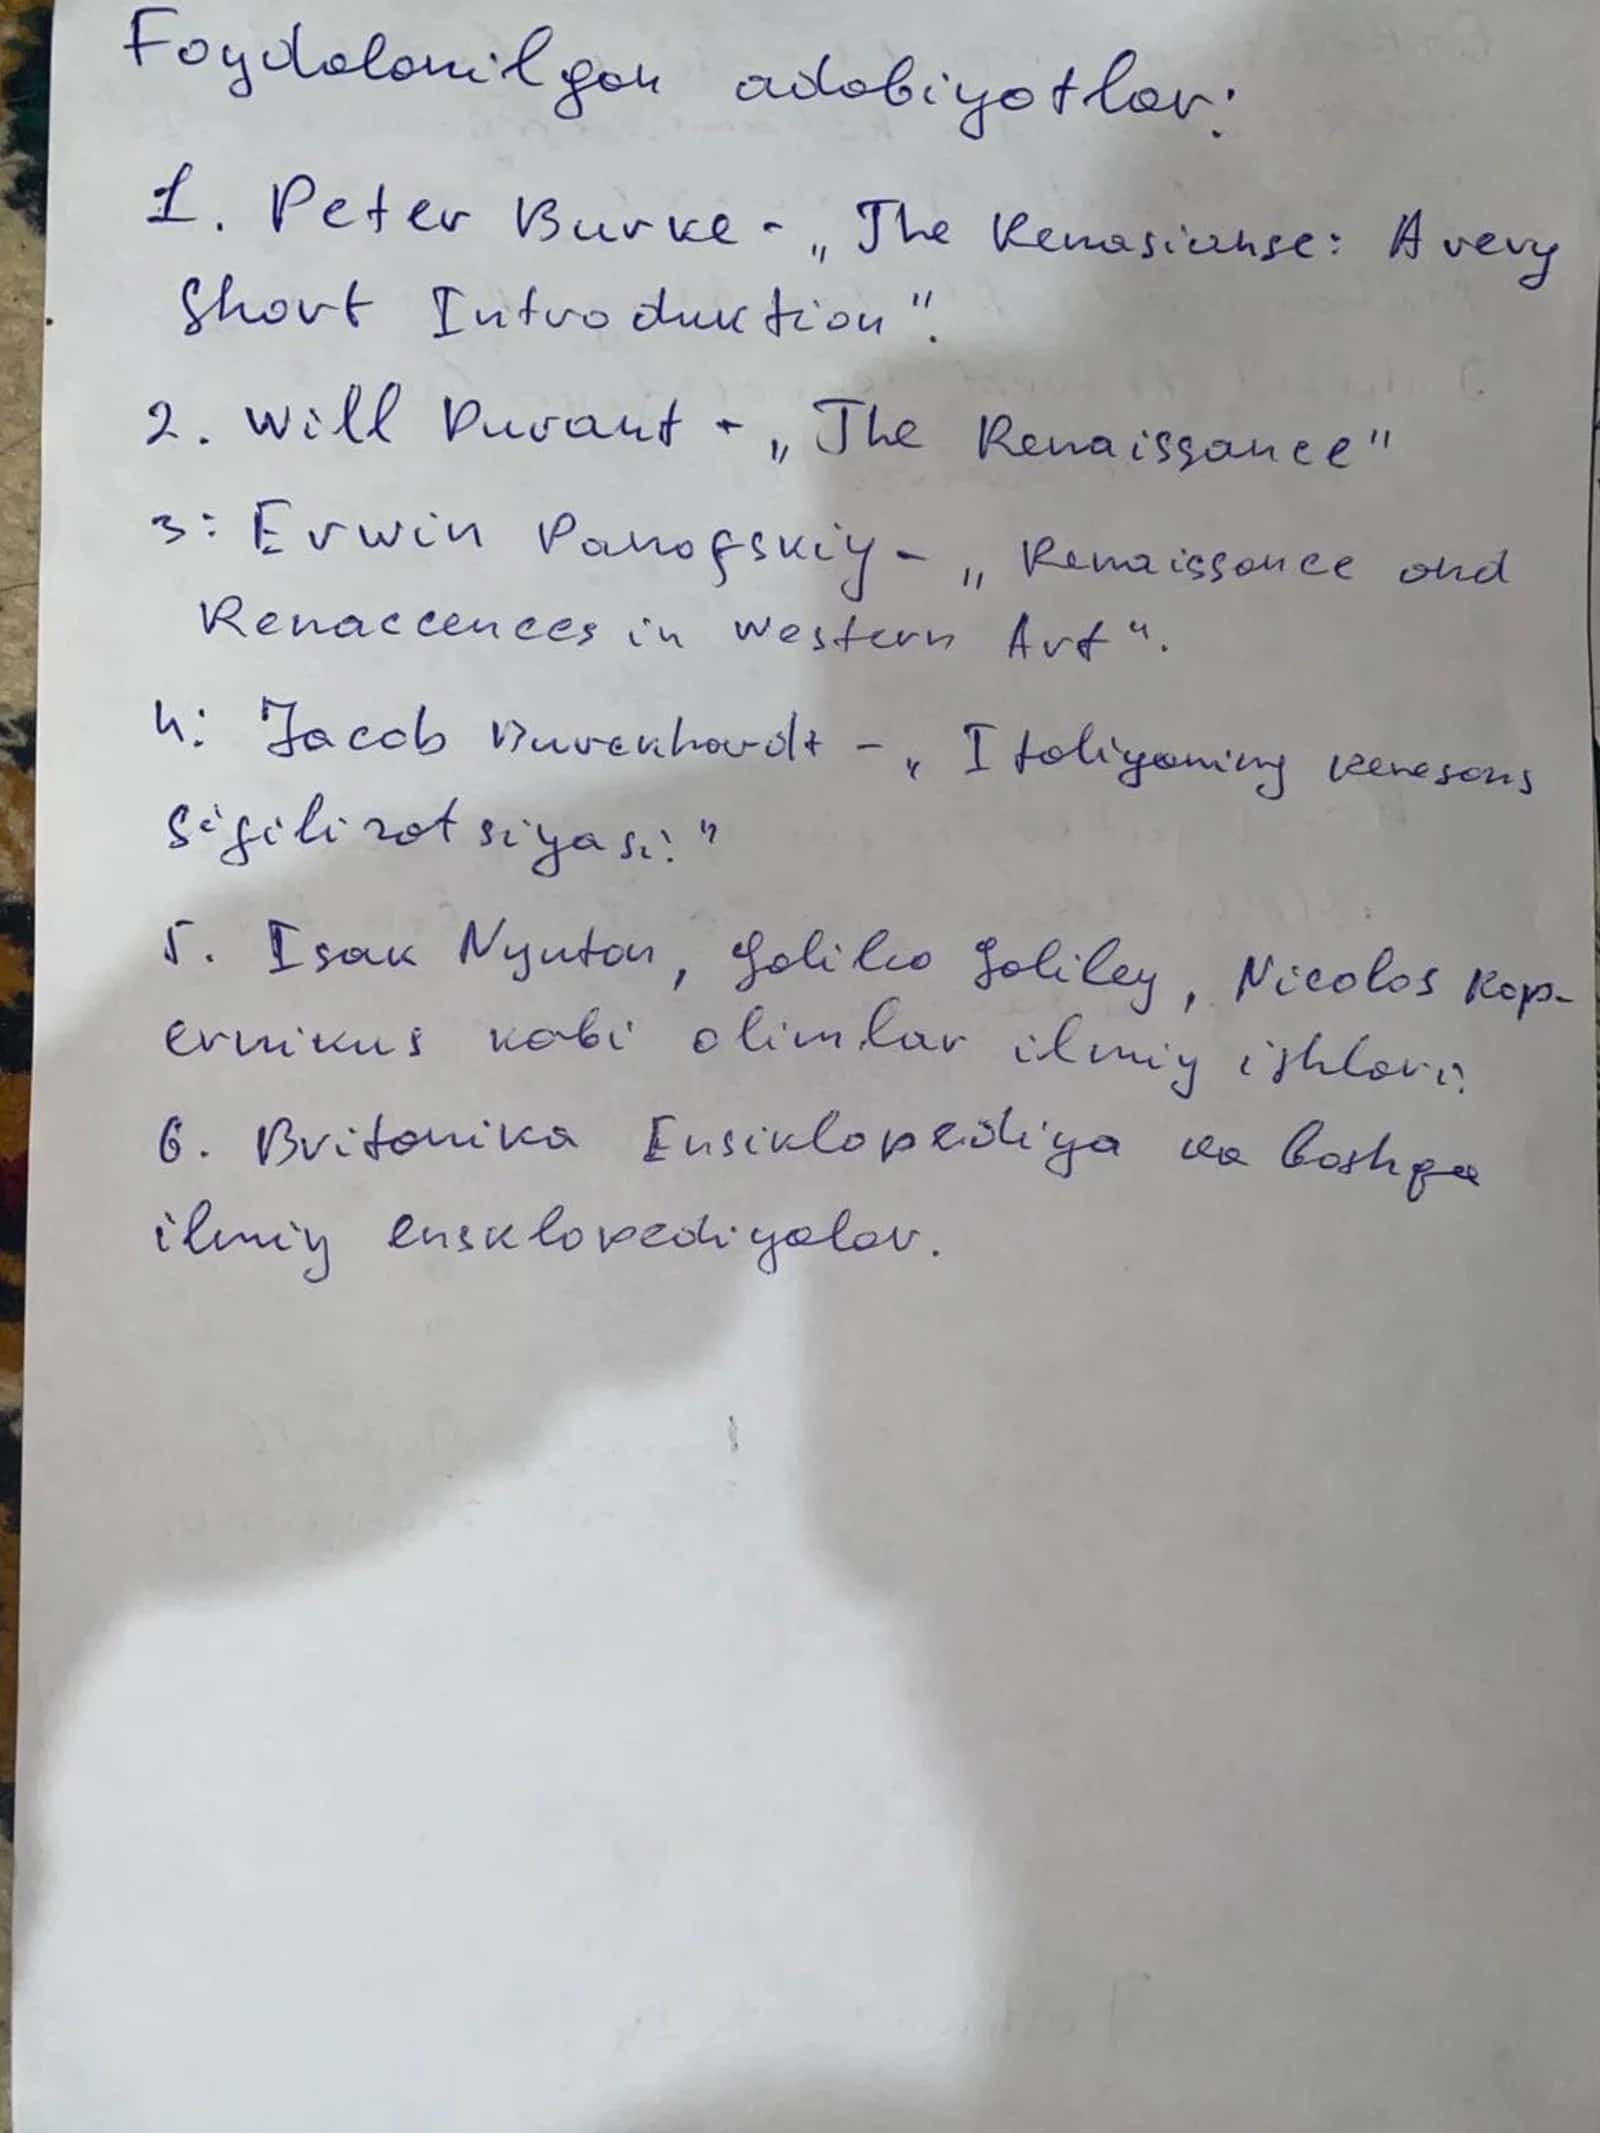 Foydalanilgan adabiyotlar:
1. Peter Burke - „The Renasianse: A very
Short Introduktion".
2. Will Durant - „The Renaissance"
3: Erwin Panofskiy - „Renaissance and
Renaccences in western Art".
4: Jacob Burckhardt - „Italiyaning renesans
sifilizatsiyasi."
5. Isak Nyutan, Galileo Galiley, Nicolos Kop-
ernikus kabi olimlar ilmiy ishlari.
6. Britanika Ensiklopediya va boshqa
ilmiy ensklopediyalar.